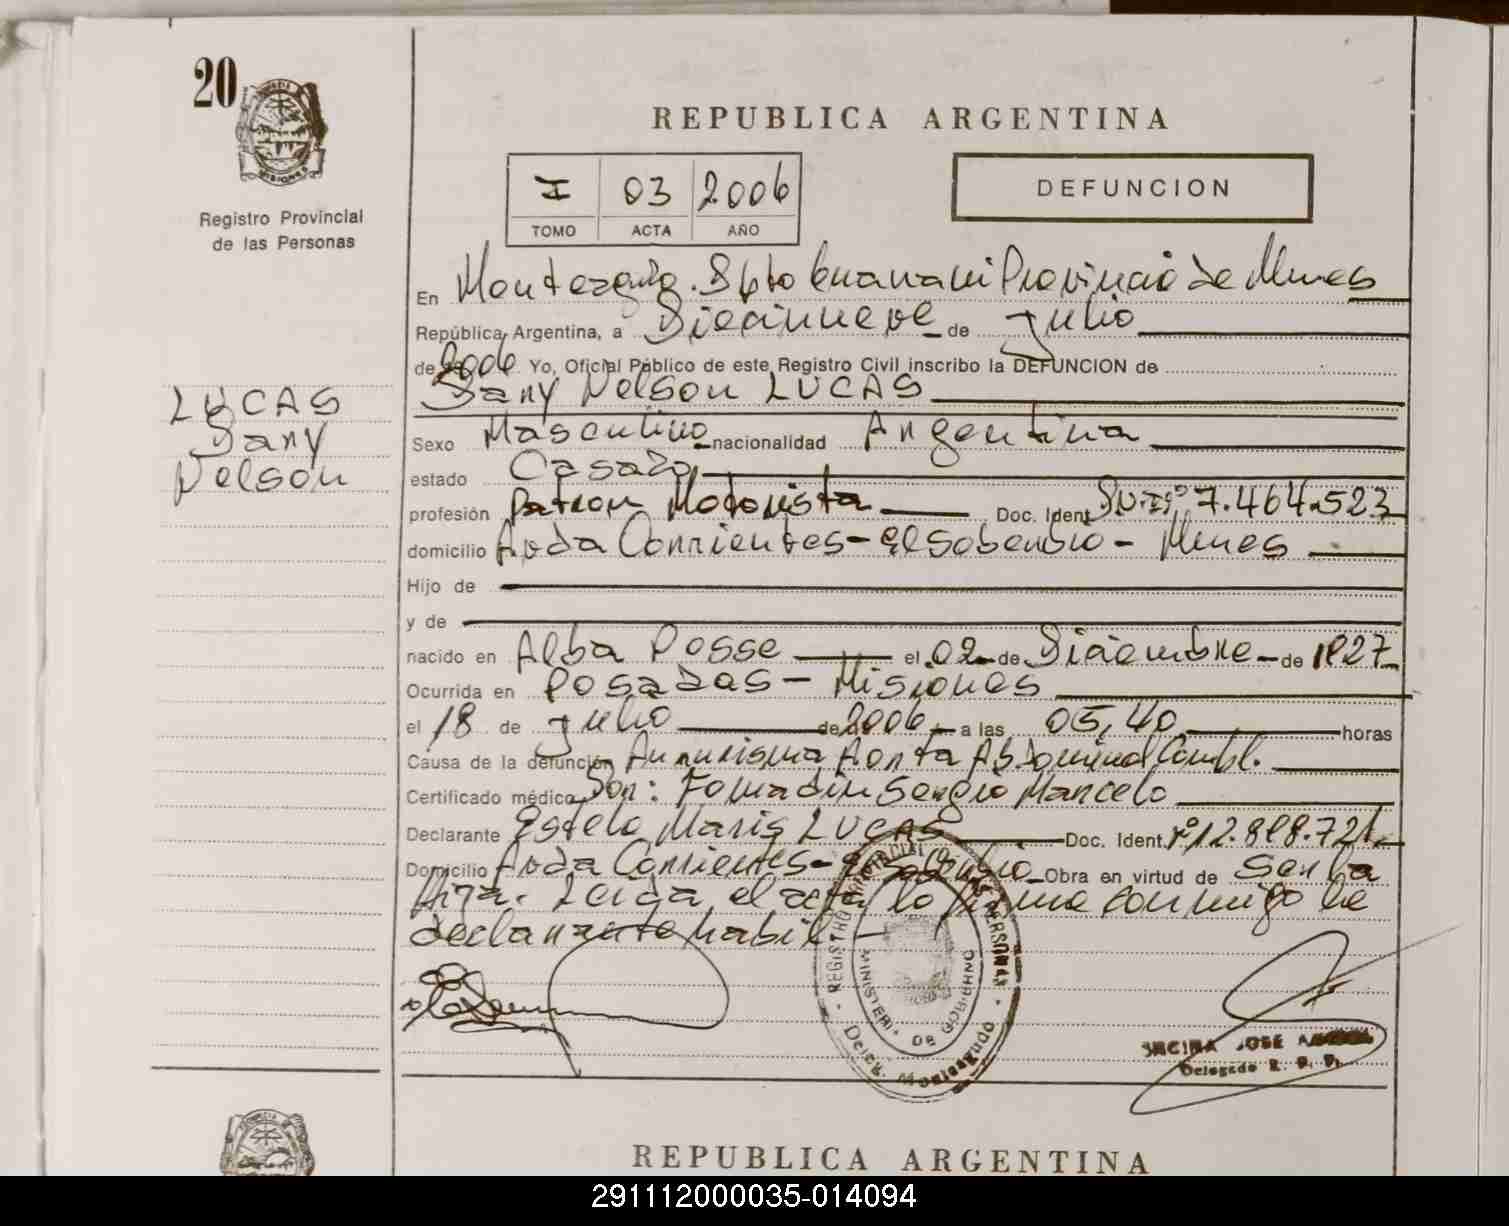 20
PROVINCIA DE
MISIONES
Registro Provincial
de las Personas
REPUBLICA ARGENTINA
I 03 2006
TOMO ACTA AÑO
DEFUNCION
En Monteagudo. Dpto Guarani Provincia de Mnes
República Argentina, a Diecinueve de Julio
de 2006 Yo, Oficial Público de este Registro Civil inscribo la DEFUNCION de
Dany Nelson LUCAS
LUCAS
Dany
Nelson
Sexo Masculino nacionalidad Argentina
estado Casado
profesión Patron Motorista Doc. Ident. Nº 7.464.523
domicilio Avda Corrientes - El Soberbio - Mnes
Hijo de
y de
nacido en Alba Posse el 02 de Diciembre de 1927
Ocurrida en Posadas - Misiones
el 18 de Julio de 2006 a las 05,40 horas
Causa de la defunción Aorta Abdominal
Certificado médico Dor: Sergio Marcelo
Declarante Estela Maris LUCAS Doc. Ident. Nº 12.
Domicilio Avda Corrientes - El Soberbio Obra en virtud de Ser la
Hija. Leida el acta la firma conmigo la
declarante habil
REGISTRO PROVINCIAL DE LAS PERSONAS
MINISTERIO DE GOBIERNO
Deleg. Monteagudo
JOSE
Delegado R. P. P.
REPUBLICA ARGENTINA
291112000035-014094